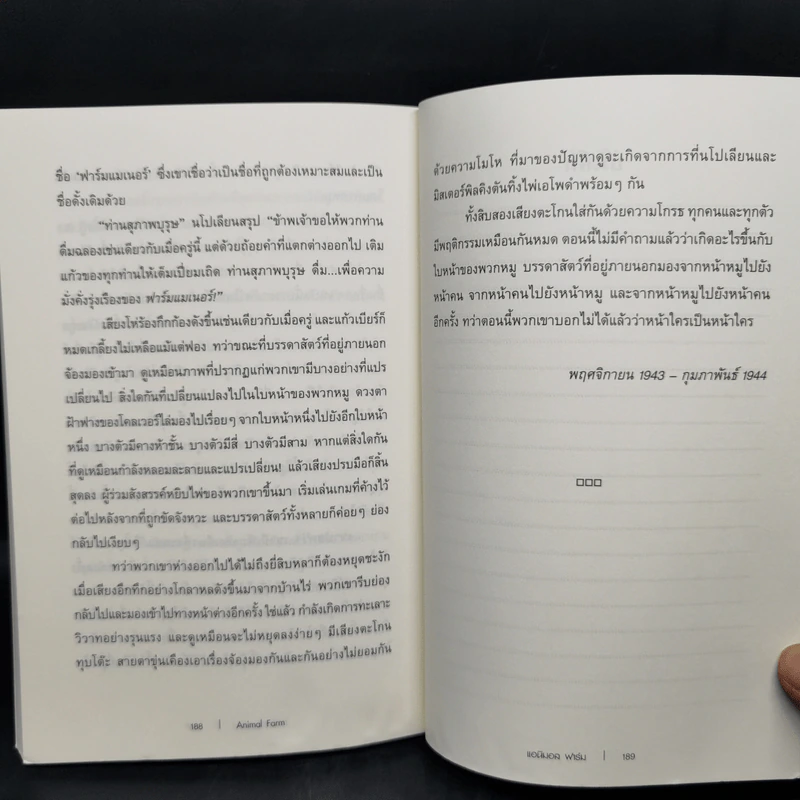 ชื่อ 'ฟาร์มแมเนอร์' ซึ่งเขาเชื่อว่าเป็นชื่อที่ถูกต้องเหมาะสมและเป็น
ชื่อดั้งเดิมด้วย
"ท่านสุภาพบุรุษ" นโปเลียนสรุป "ข้าพเจ้าขอให้พวกท่าน
ดื่มฉลองเช่นเดียวกับเมื่อครู่นี้ แต่ด้วยถ้อยคำที่แตกต่างออกไป เติม
แก้วของทุกท่านให้เต็มเปี่ยมเถิด ท่านสุภาพบุรุษ ดื่ม...เพื่อความ
มั่งคั่งรุ่งเรืองของ ฟาร์มแมเนอร์!"
เสียงโห่ร้องกึกก้องดังขึ้นเช่นเดียวกับเมื่อครู่ และแก้วเบียร์ก็
หมดเกลี้ยงไม่เหลือแม้แต่ฟอง ทว่าขณะที่บรรดาสัตว์ที่อยู่ภายนอก
จ้องมองเข้ามา ดูเหมือนภาพที่ปรากฏแก่พวกเขามีบางอย่างที่แปร
เปลี่ยนไป สิ่งใดกันที่เปลี่ยนแปลงไปในใบหน้าของพวกหมู ดวงตา
ฝ้าฟางของโคลเวอร์ไล่มองไปเรื่อยๆ จากใบหน้าหนึ่งไปยังอีกใบหน้า
หนึ่ง บางตัวมีคางห้าชั้น บางตัวมีสี่ บางตัวมีสาม หากแต่สิ่งใดกัน
ที่ดูเหมือนกำลังหลอมละลายและแปรเปลี่ยน! แล้วเสียงปรบมือก็สิ้น
สุดลง ผู้ร่วมสังสรรค์หยิบไพ่ของพวกเขาขึ้นมา เริ่มเล่นเกมที่ค้างไว้
ต่อไปหลังจากที่ถูกขัดจังหวะ และบรรดาสัตว์ทั้งหลายก็ค่อยๆ ย่อง
กลับไปเงียบๆ
ทว่าพวกเขาห่างออกไปได้ไม่ถึงยี่สิบหลาก็ต้องหยุดชะงัก
เมื่อเสียงอึกทึกอย่างโกลาหลดังขึ้นมาจากบ้านไร่ พวกเขารีบย่อง
กลับไปและมองเข้าไปทางหน้าต่างอีกครั้ง ใช่แล้ว กำลังเกิดการทะเลาะ
วิวาทอย่างรุนแรง และดูเหมือนจะไม่หยุดลงง่ายๆ มีเสียงตะโกน
ทุบโต๊ะ สายตาขุ่นเคืองเอาเรื่องจ้องมองกันและกันอย่างไม่ยอมกัน
188 | Animal Farm
ด้วยความโมโห ที่มาของปัญหาดูจะเกิดจากการที่นโปเลียนและ
มิสเตอร์พิลคิงตันทิ้งไพ่เอโพดำพร้อมๆ กัน
ทั้งสิบสองเสียงตะโกนใส่กันด้วยความโกรธ ทุกคนและทุกตัว
มีพฤติกรรมเหมือนกันหมด ตอนนี้ไม่มีคำถามแล้วว่าเกิดอะไรขึ้นกับ
ใบหน้าของพวกหมู บรรดาสัตว์ที่อยู่ภายนอกมองจากหน้าหมูไปยัง
หน้าคน จากหน้าคนไปยังหน้าหมู และจากหน้าหมูไปยังหน้าคน
อีกครั้ง ทว่าตอนนี้พวกเขาบอกไม่ได้แล้วว่าหน้าใครเป็นหน้าใคร
พฤศจิกายน 1943 – กุมภาพันธ์ 1944
แอนิมอล ฟาร์ม | 189